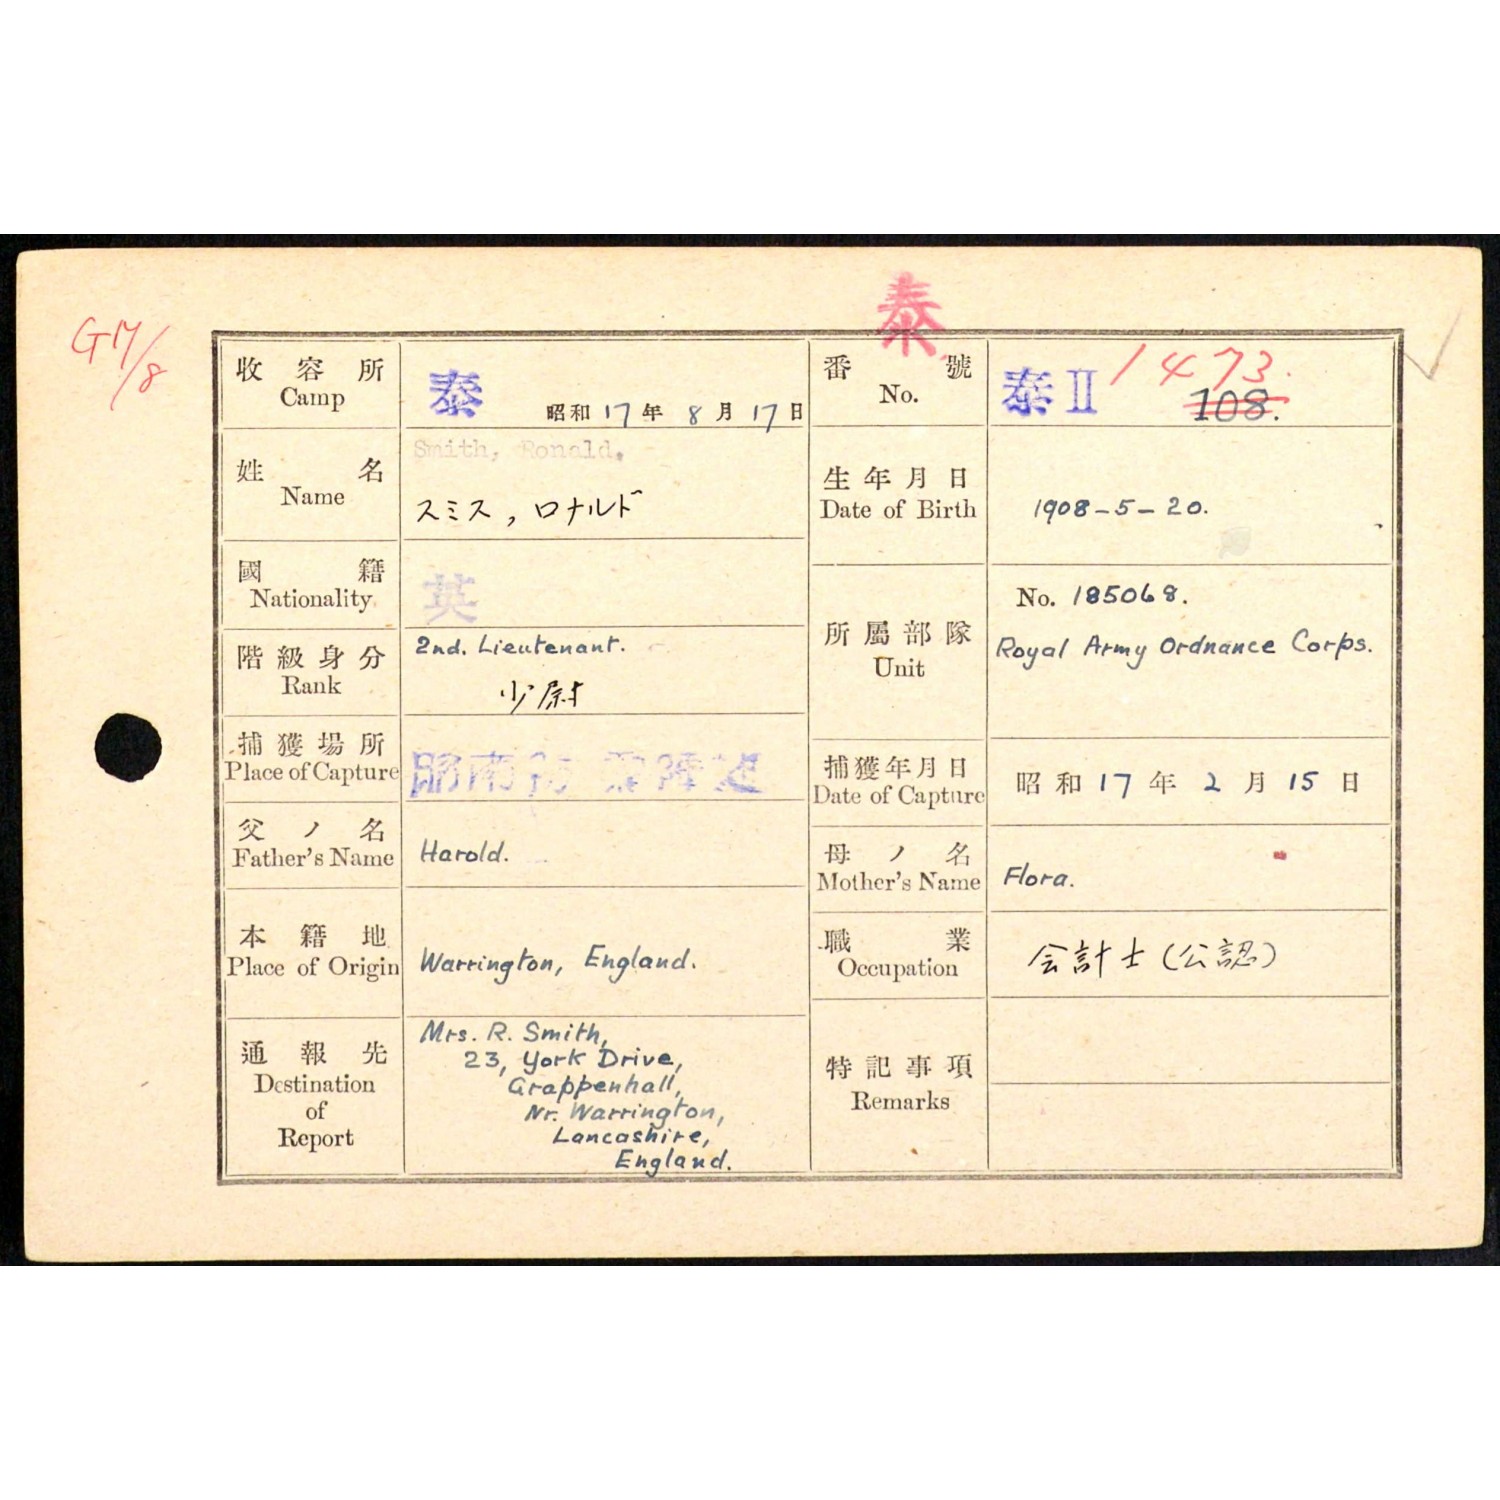 泰
G 17/8
收容所
Camp
泰
昭和17年8月17日
番號
No.
泰II 1473.
108.
姓名
Name
Smith, Ronald.
スミス, ロナルド
生年月日
Date of Birth
1908-5-20.
國籍
Nationality
英
所屬部隊
Unit
No. 185068.
Royal Army Ordnance Corps.
階級身分
Rank
2nd. Lieutenant.
少尉
捕獲場所
Place of Capture
昭南
捕獲年月日
Date of Capture
昭和17年2月15日
父ノ名
Father's Name
Harold.
母ノ名
Mother's Name
Flora.
本籍地
Place of Origin
Warrington, England.
職業
Occupation
会計士(公認)
通報先
Destination
of
Report
Mrs. R. Smith,
23, York Drive,
Grappenhall,
Nr. Warrington,
Lancashire,
England.
特記事項
Remarks